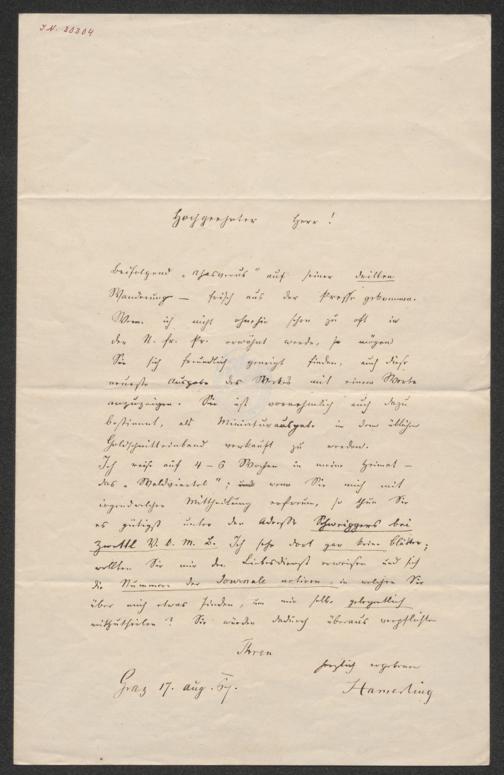 I.N. 20204
Hochgeehrter Herr!
Beifolgend „Ahasverus" auf seiner dritten
Wanderung — frisch aus der Presse gekommen.
Wenn ich nicht ohnehin schon zu oft in
der N. fr. Pr. erwähnt werde, so mögen
Sie sich freundlich geneigt finden, auch diese
neueste Ausgabe des Werkes mit einem Worte
anzuzeigen. Sie ist vornehmlich auch dazu
bestimmt, als Miniaturausgabe in dem üblichen
Goldschnitteinband verkauft zu werden.
Ich reise auf 4–6 Wochen in meine Heimat —
das „Waldviertel"; und wenn Sie mich mit
irgendwelcher Mittheilung erfreuen, so thun Sie
es gütigst unter der Adresse Schweiggers bei
Zwettl V. O. M. B. Ich sehe dort gar keine Blätter;
wollten Sie mir den Liebesdienst erweisen und sich
die Nummern der Journale notiren, in welchen Sie
über mich etwas finden, um mir selbe gelegentlich
mitzutheilen? Sie würden dadurch überaus verpflichten
Ihren
herzlich ergebenen
Graz 17. Aug. 67.
Hamerling